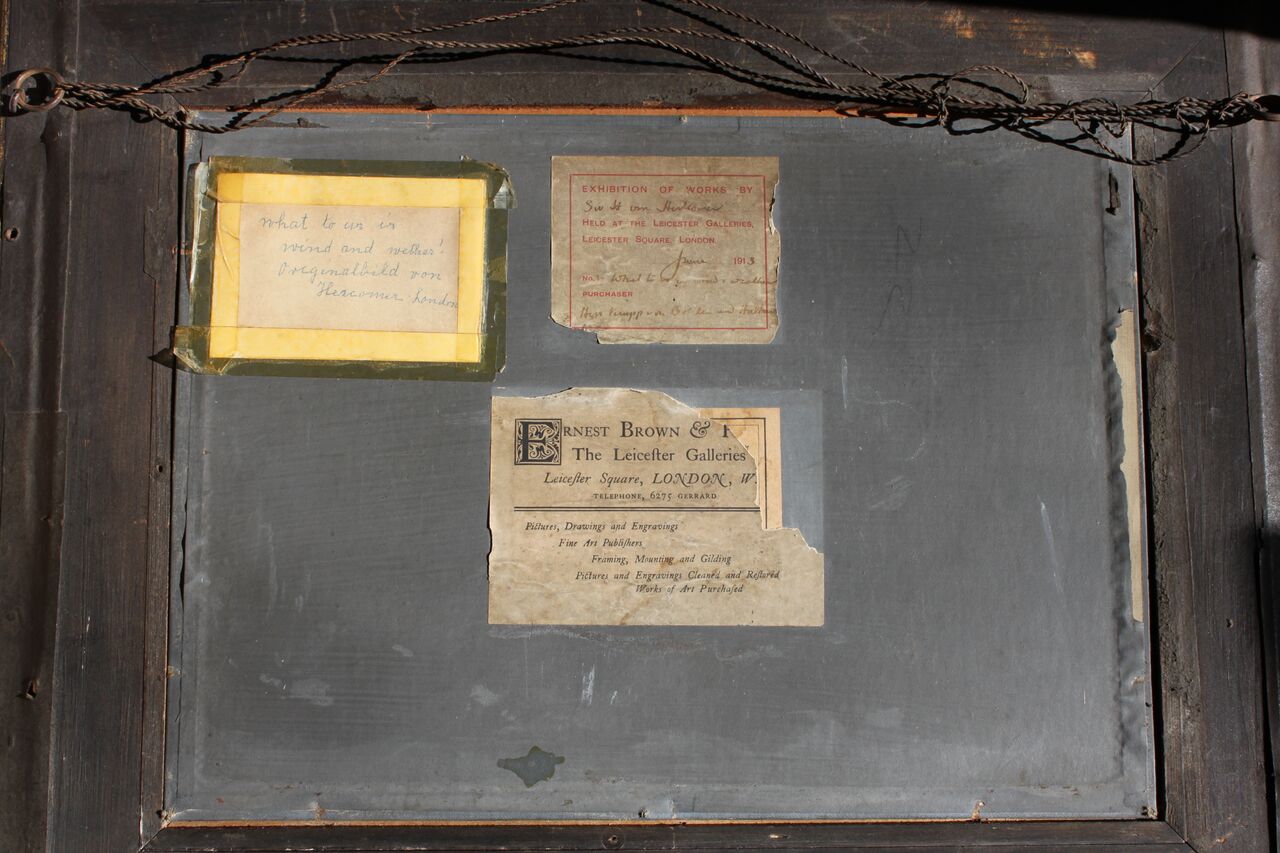 what to us is
wind and wether!
Originalbild von
Hercomer London
EXHIBITION OF WORKS BY
Sir H von Herkomer
HELD AT THE LEICESTER GALLERIES,
LEICESTER SQUARE, LONDON.
June 1913
No. 1 What to us is wind & weather
PURCHASER
Herr Krupp von Bohlen und Halbach
ERNEST BROWN &
The Leicester Galleries
Leicester Square, LONDON, W.
TELEPHONE, 6275 GERRARD
Pictures, Drawings and Engravings
Fine Art Publishers
Framing, Mounting and Gilding
Pictures and Engravings Cleaned and Restored
Works of Art Purchased